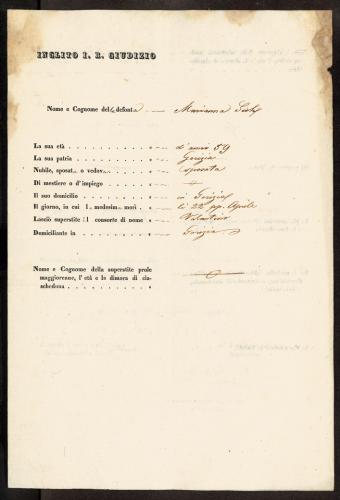 INCLITO I. R. GIUDIZIO
Nome e Cognome della defonta Marianna
La sua età d'anni 59
La sua patria Gorizia
Nubile, sposat. o vedov. sposata
Di mestiere o d'impiego
Il suo domicilio in Gorizia
Il giorno, in cui l. medesim. morì li 22 pp. Aprile
Lasciò superstite il consorte di nome Valentino
Domiciliante in Gorizia
Nome e Cognome della superstite prole
maggiorenne, l'età e la dimora di cia-
scheduna